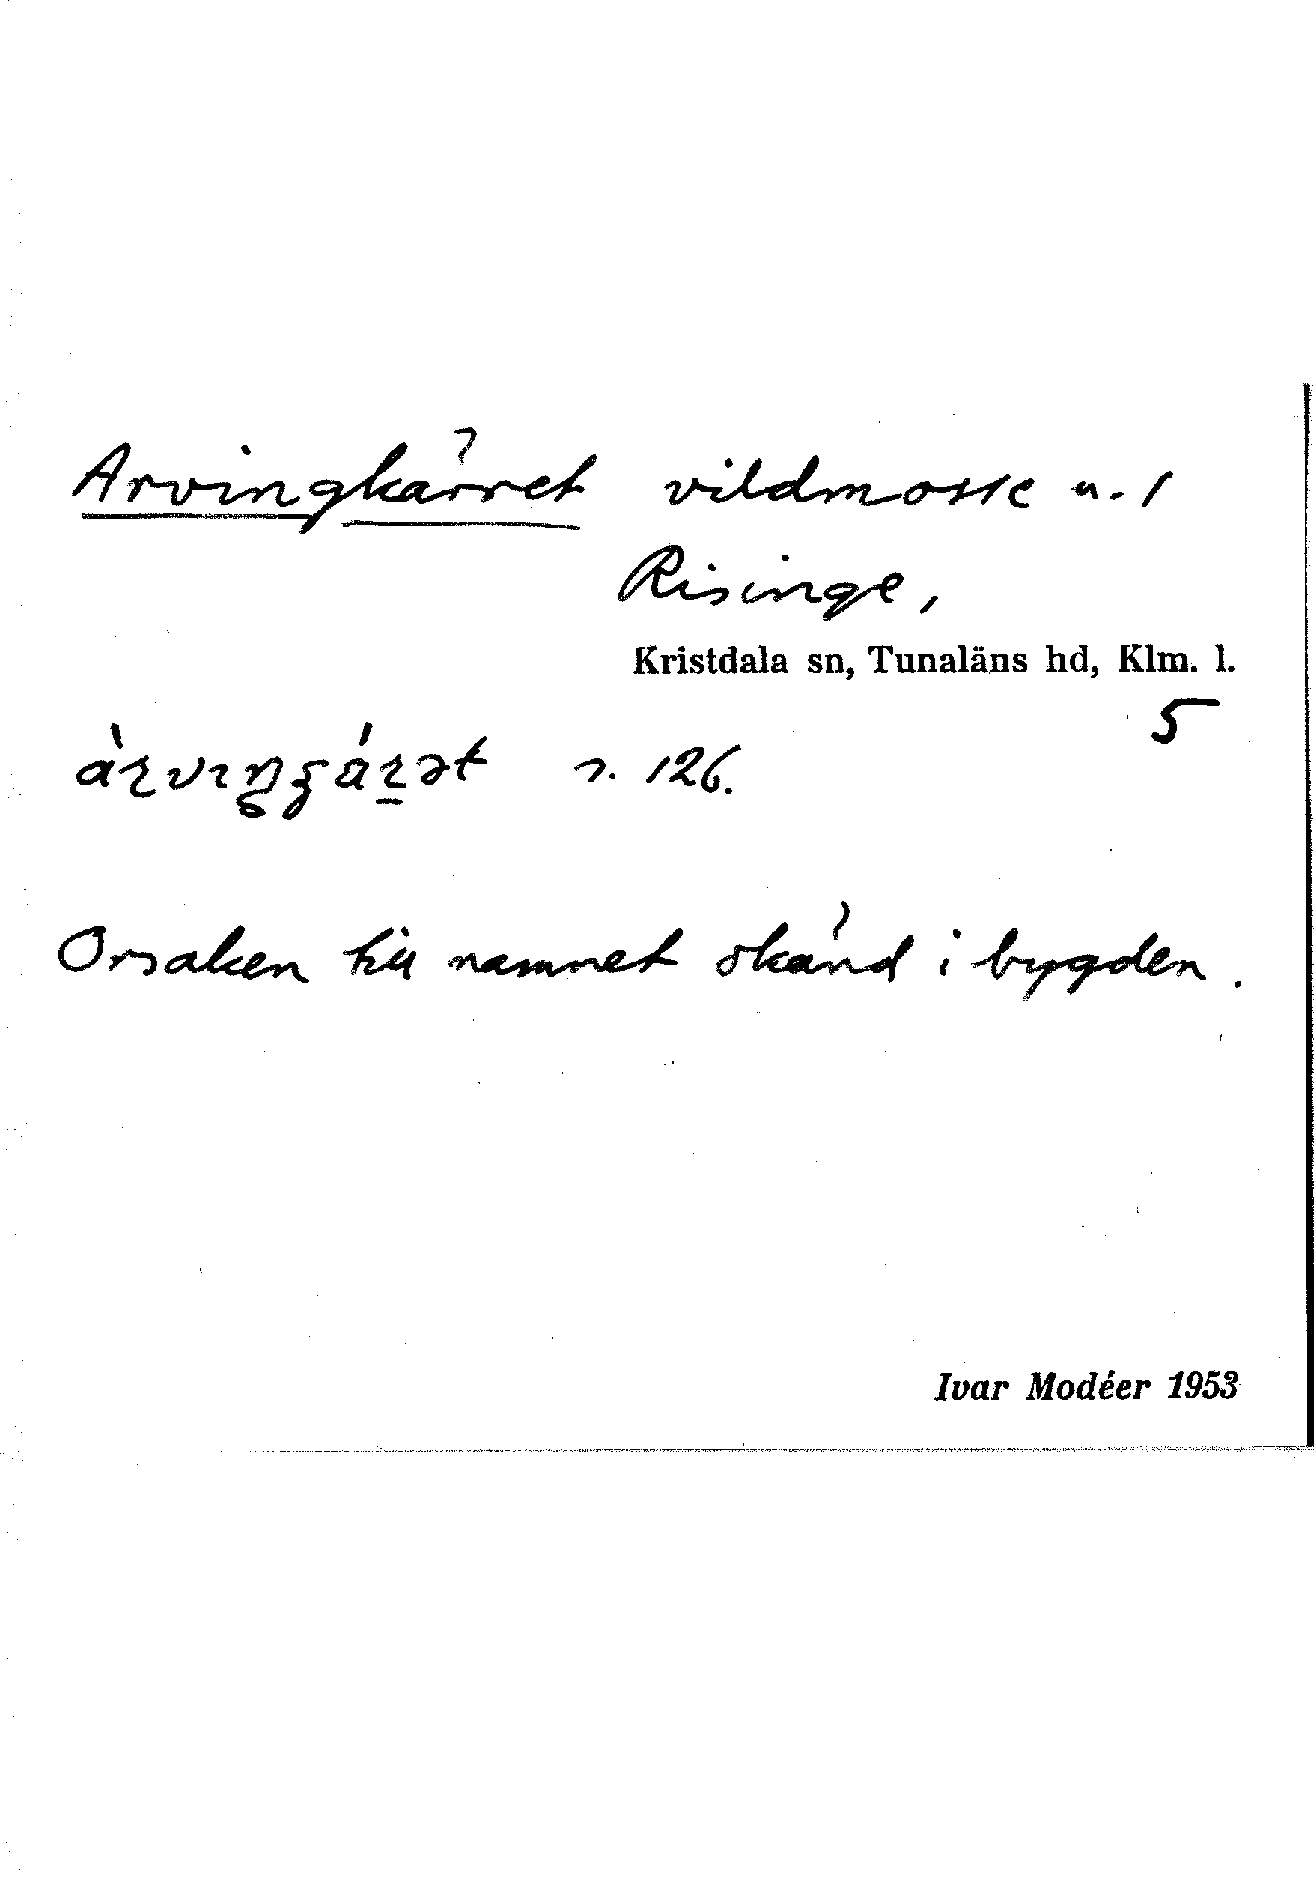 Arvingkärret vildmosse u. 1
Risinge,
Kristdala sn, Tunaläns hd, Klm. l.
5
s. 126.
Orsaken till namnet okänd i bygden.
Ivar Modéer 1953